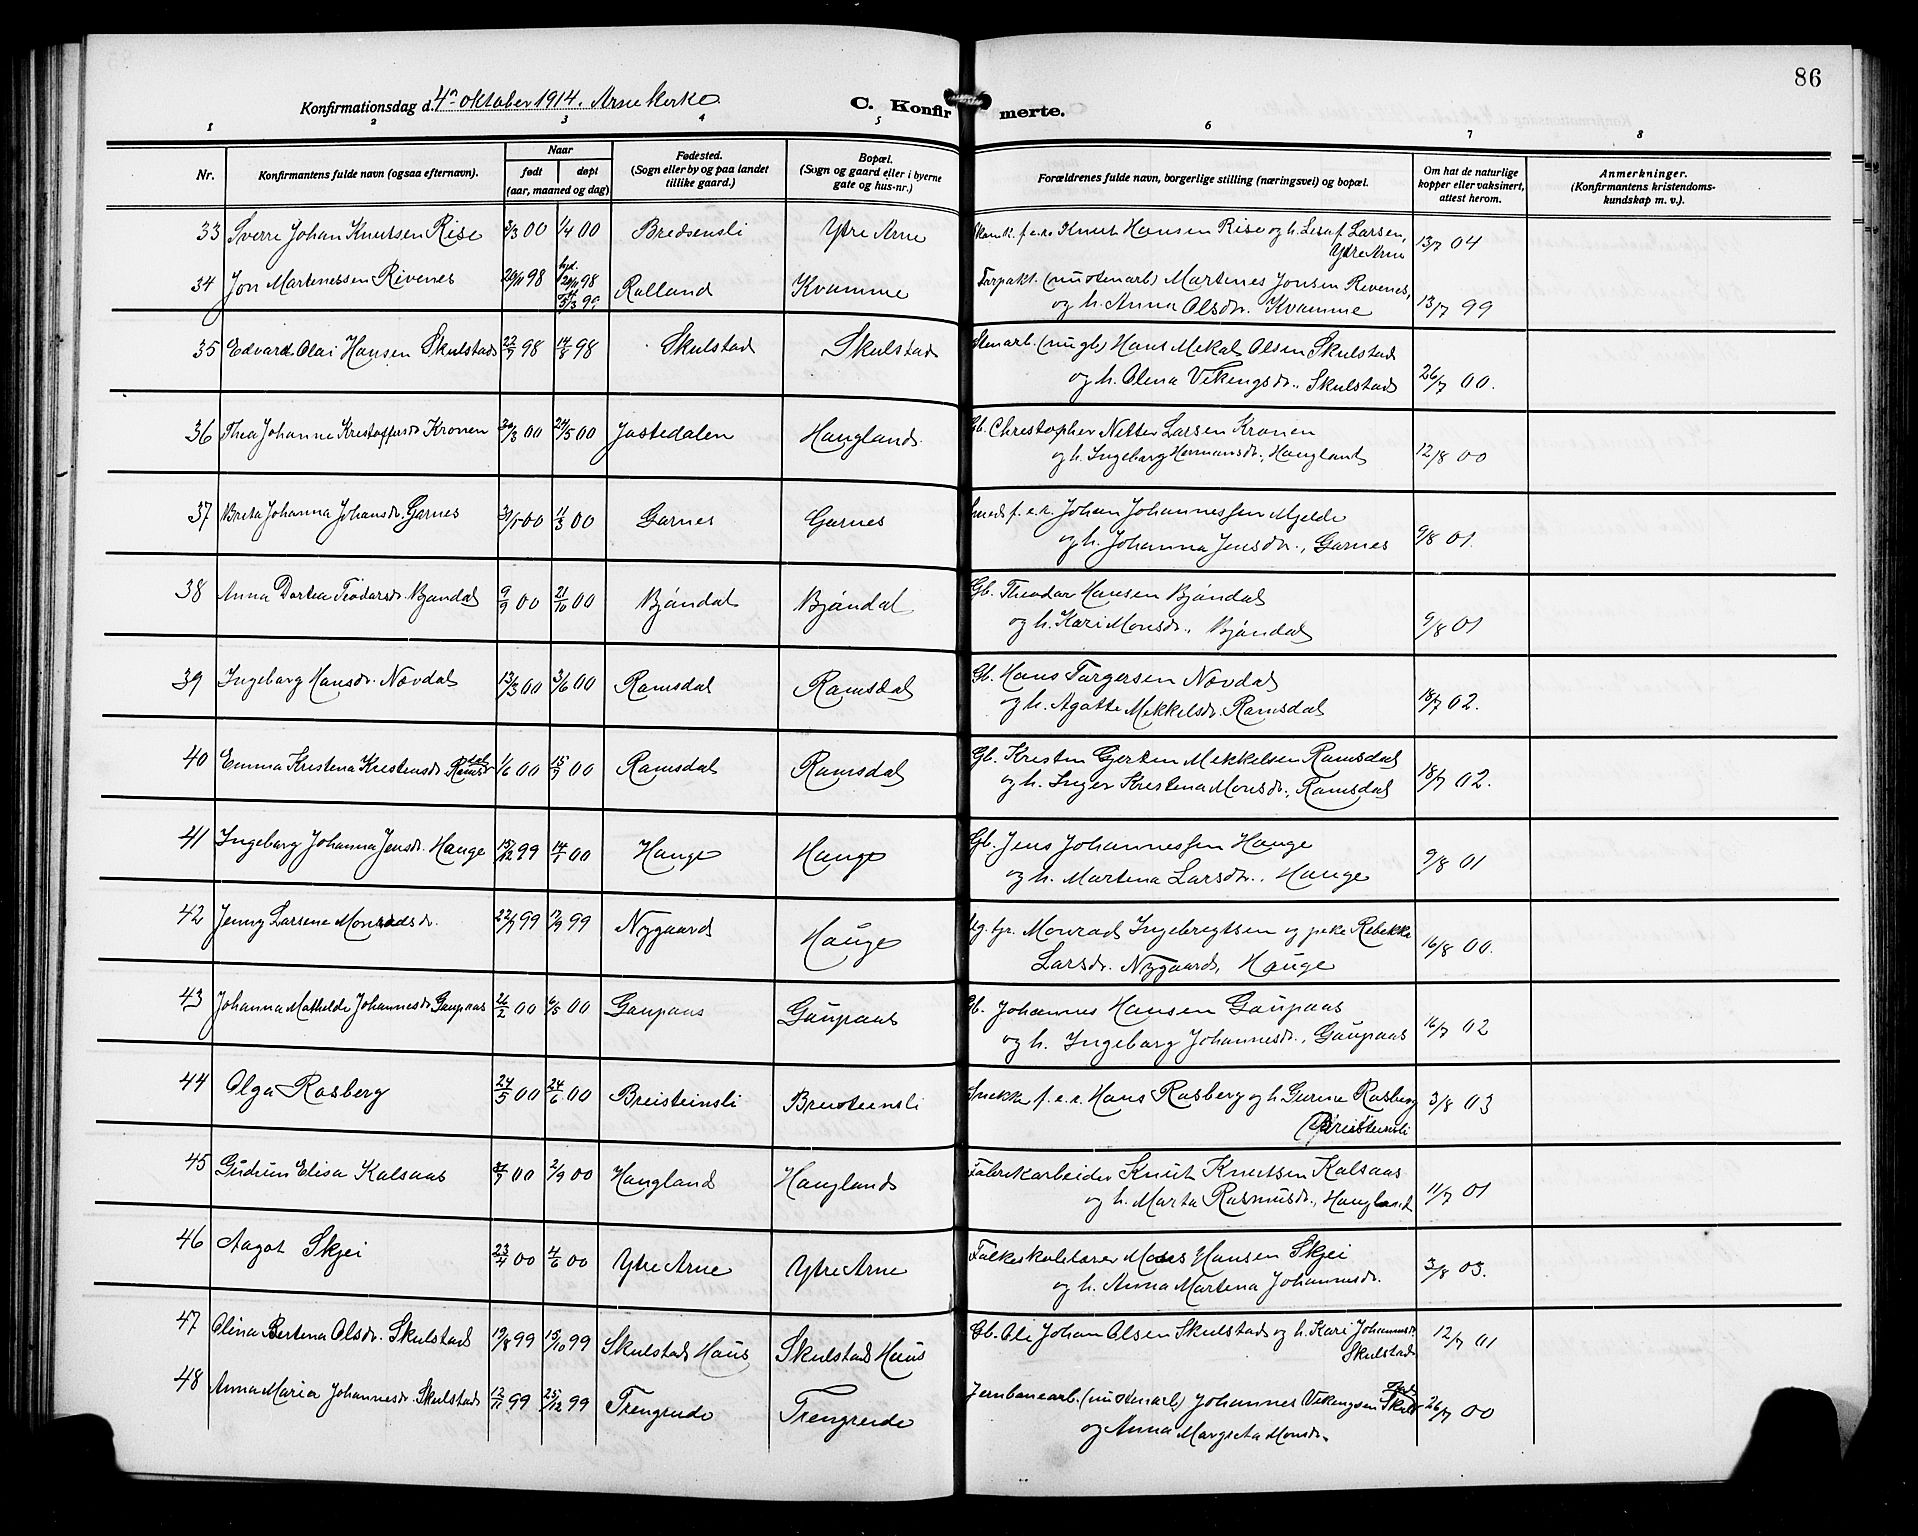 86
Konfirmationsdag d. 4de oktober 1914. Arne kirke. C. Konfirmerte.
1 2 3 4 5 6 7 8
Nr. Konfirmantens fulde navn (ogsaa efternavn). Naar født døpt (aar, maaned og dag) Fødested. (Sogn eller by og paa landet tillike gaard.) Bopæl. (Sogn og gaard eller i byerne gate og hus-nr.) Forældrenes fulde navn, borgerlige stilling (næringsvei) og bopæl. Om hat de naturlige kopper eller vaksinert, attest herom. Anmerkninger. (Konfirmantens kristendoms-kundskap m. v.).
33 Sverre Johan Knutsen Rise 2/3 00 1/4 00 Bredsensli Ytre Arne f.e.r. Knut Hansen Rise og h. Larsen, 13/7 04
Ytre Arne
34 Jon Martenessen Rivenes 98 98 Rolland Kvamme Forpakt. (nu stenarb) Martenes Jonsen Revenes, 13/7 99
5/3 99 og h. Anna Olsdr. Kvamme
35 Edvard Olai Hansen Skulstad 22/7 98 14/8 98 Skulstad Skulstad Stenarb. (nu gb) Hans Mekal Olsen Skulstad
og h. Olena Vekengsdr., Skulstad 26/7 00.
36 Thea Johanna Kristoffersdr Kronen 30/3 00 24/5 00 Jostedalen Hauglands Gb. Christopher Netter Larsen Kronen
og h. Ingeborg Hermansdr., Haugland 12/8 00
37 Brita Johanna Johansdr. Garnes 31/1 00 11/3 00 Garnes Garnes Smed f.e.r. Johan Johannessen Mjelde
og h. Johanna Jensdr., Garnes 9/8 01.
38 Anna Dortea Teodorsdr. Bjøndal 9/9 00 21/10 00 Bjøndal Bjøndal Gb. Theodor Hansen Bjøndal
og h. Kari Monsdr., Bjøndal 9/8 01
39 Ingeborg Hansdr. Nævdal 13/3 00 3/6 00 Ramsdal Ramsdal Gb. Hans Torgersen Nævdal
og h. Agatte Mekkelsdr. Ramsdal 18/7 02.
40 Emma Kristena Kristensdr. Ramsdal 1/6 00 15/7 00 Ramsdal Ramsdal Gb. Kresten Gerten Mekkelsen Ramsdal
og h. Inger Kristena Monsdr., Ramsdal 18/7 02.
41 Ingeborg Johanna Jensdr. Hauge 15/12 99 14/1 00 Hauge Hauge Gb. Jens Johannessen Hauge
og h. Martena Larsdr., Hauge 9/8 01
42 Jenny Larsene Monradsdr. 22/7 99 17/9 99 Nygaard Hauge Ug. Monrad Ingebrigtsen og pike Rebekka
Larsdr. Nygaard, Hauge 16/8 00.
43 Johanna Mathilde Johannesdr. Gaupaas 26/2 00 6/5 00 Gaupaas Gaupaas Gb. Johannes Hansen Gaupaas
og h. Ingeborg Johannesdr., Gaupaas 16/7 02
44 Olga Rosberg 24/5 00 24/6 00 Breisteinsli Breisteinsli Snekker f.e.r. Hans Rosberg og h. Gurine Rosberg 3/8 03
Breisteinsli
45 Gudrun Elisa Kalsaas 31/7 00 2/9 00 Haugland Hauglands Fabrikarbeider Knut Knutsen Kalsaas
og h. Marta Rasmusdr., Haugland 11/7 01
46 Aagot Skjei 23/4 00 4/6 00 Ytre Arne Ytre Arne Folkeskolelærer Moses Hansen Skjei
og h. Anna Martena Johannesdr. 3/8 03.
47 Olina Bertena Olsdr. Skulstad 19/8 99 15/10 99 Skulstad Haus Skulstad Haus Gb. Ole Johan Olsen Skulstad og h. Kari Johannesdr. 12/7 01
Skulstad
48 Anna Maria Johannesdr. Skulstad 12/11 99 25/12 99 Trengreide Trengreide Jernbanearb. (nu stenarb) Johannes Vekengsen Skulstad 26/7 00
og Anna Margreta Monsdr.